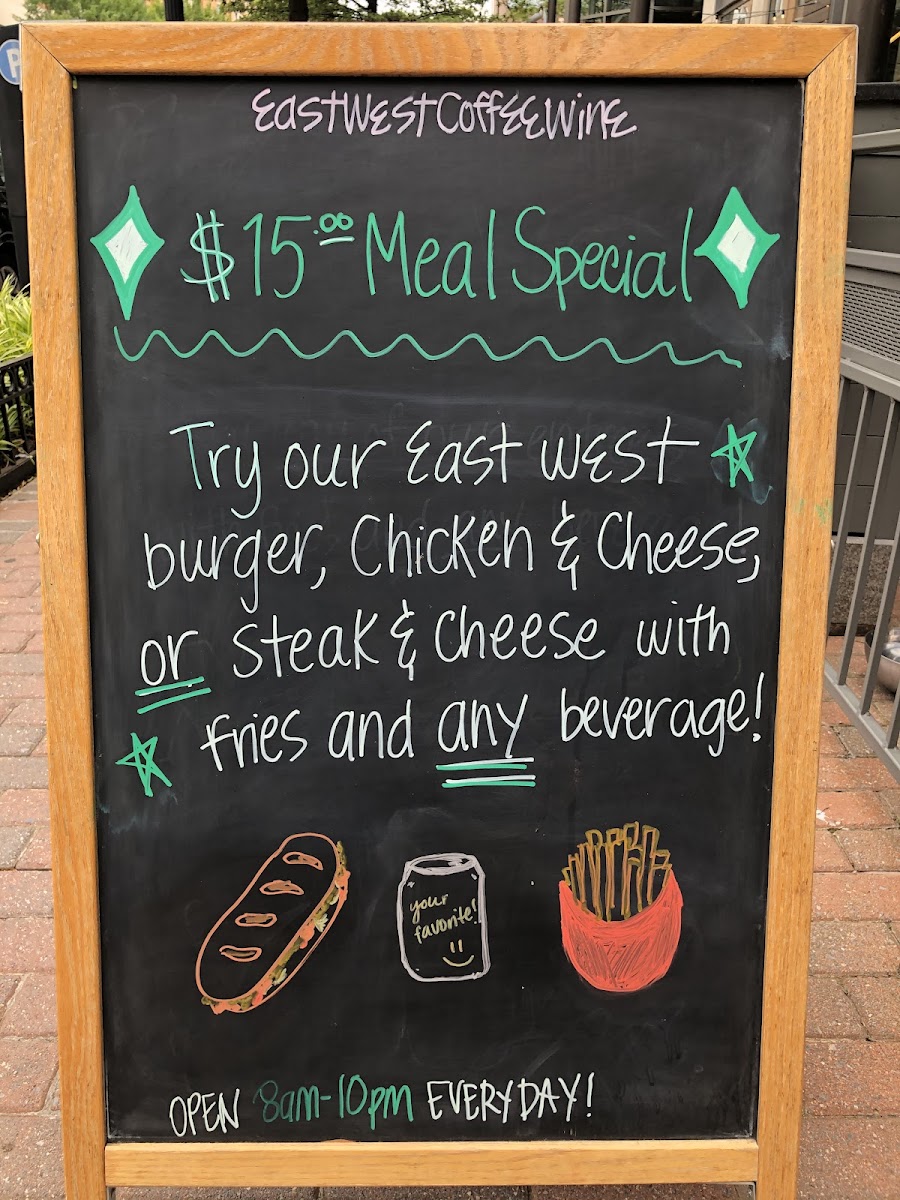 EastWestCoffeeWine
$15.00 Meal Special
Try our East West
burger, Chicken & Cheese,
or Steak & Cheese with
fries and any beverage!
your
favorite!
OPEN 8am-10pm EVERYDAY!